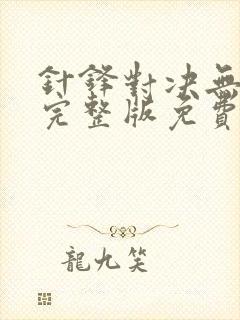 針鋒對决無
完整版免費
龍九笑